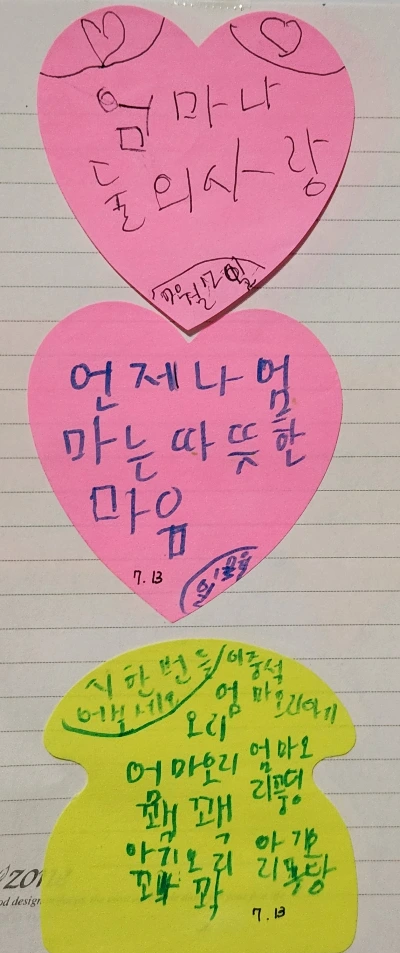 엄마나
둘의사랑
7월7일
언제나엄
마는따뜻한
마음
7.13
일요일
시한번들
어보세요
이중석
엄마오리아기
오리
엄마오리
꽥꽥
엄마오
리풍덩
아기오리
꽉꽉
아기오
리퐁당
7.13
zone
od design